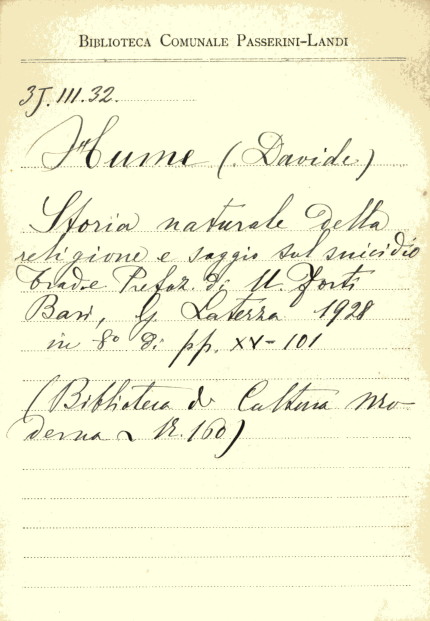 BIBLIOTECA COMUNALE PASSERINI-LANDI
3J.III.32.
Hume (Davide)
Storia naturale della
religione e saggio sul suicidio
Trad. e Prefaz. di U. Forti
Bari, G. Laterza 1928
in 8º di pp. XV-101
(Biblioteca di Cultura Mo-
derna N. 160)